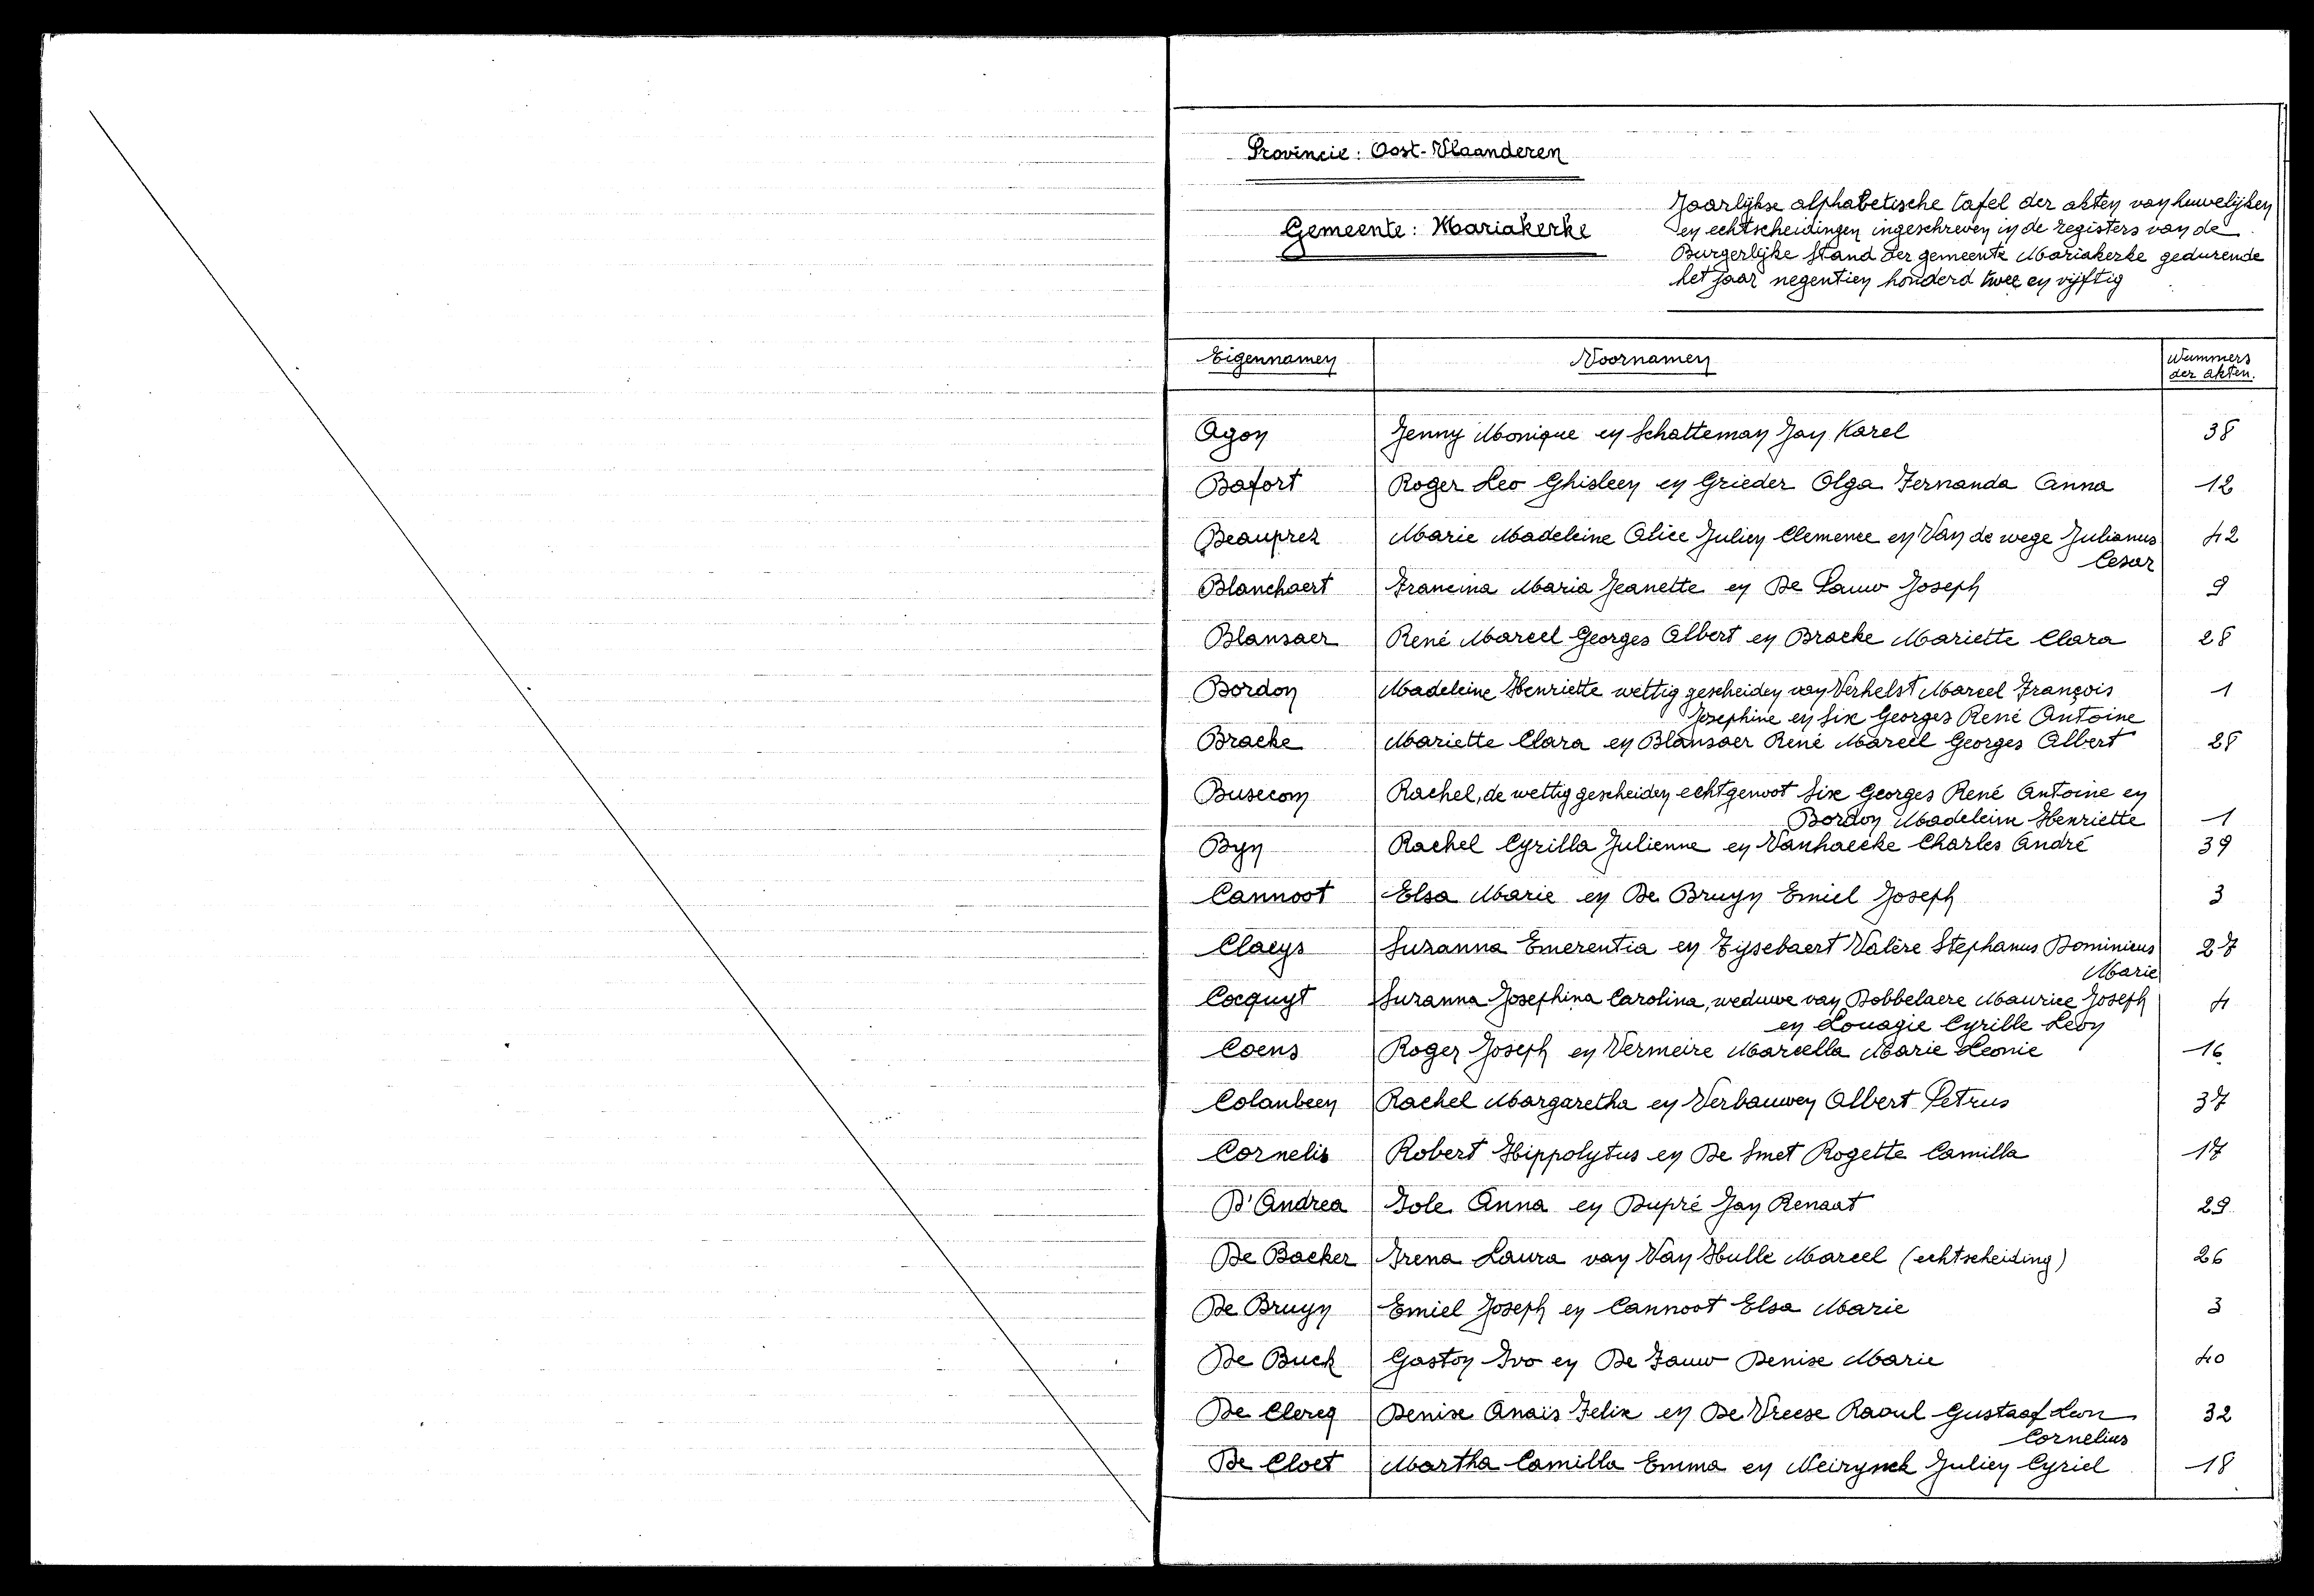 Provincie: Oost-Vlaanderen
Gemeente: Mariakerke
Jaarlijkse alphabetische tafel der akten van huwelijken
en echtscheidingen ingeschreven in de registers van de
Burgerlijke Stand der gemeente Mariakerke gedurende
het jaar negentien honderd twee en vijftig
Eigennamen Voornamen Nummers
der akten.
Agon Jenny Monique en Schatteman Jan Karel 38
Bafort Roger Leo Ghisleen en Grieder Olga Fernanda Anna 12
Beauprez Marie Madeleine Alice Julien Clemence en Van de wege Julianus 42
Cesar
Blanchaert Francina Maria Jeanette en De Pauw Joseph 9
Blansaer René Marcel Georges Albert en Bracke Mariette Clara 28
Bordon Madeleine Henriette wettig gescheiden van Verhelst Marcel François 1
Josephine en Six Georges René Antoine
Bracke Mariette Clara en Blansaer René Marcel Georges Albert 28
Busecom Rachel, de wettig gescheiden echtgenoot Six Georges René Antoine en
Bordon Madeleine Henriette 1
Byn Rachel Cyrilla Julienne en Vanhaecke Charles André 39
Cannoot Elsa Marie en De Bruyn Emiel Joseph 3
Claeys Suzanna Emerentia en Tijsebaert Valère Stephanus Dominicus 27
Marie
Cocquyt Suzanna Josephina Carolina, weduwe van Dobbelaere Maurice Joseph 4
en Louagie Cyrille Leon
Coens Roger Joseph en Vermeire Marcella Marie Leonie 16
Colanbeen Rachel Margaretha en Verbauwen Albert Petrus 37
Cornelis Robert Hippolytus en De Smet Rogette Camilla 17
D'Andrea Iole Anna en Dupré Jan Renaat 29
De Backer Irena Laura van Van Hulle Marcel (echtscheiding) 26
De Bruyn Emiel Joseph en Cannoot Elsa Marie 3
De Buck Gaston Ivo en De Fauw Denise Marie 40
De Clercq Denise Anaïs Felix en De Vreese Raoul Gustaaf Leon 32
Cornelius
De Cloet Martha Camilla Emma en Neirynck Julien Cyriel 18